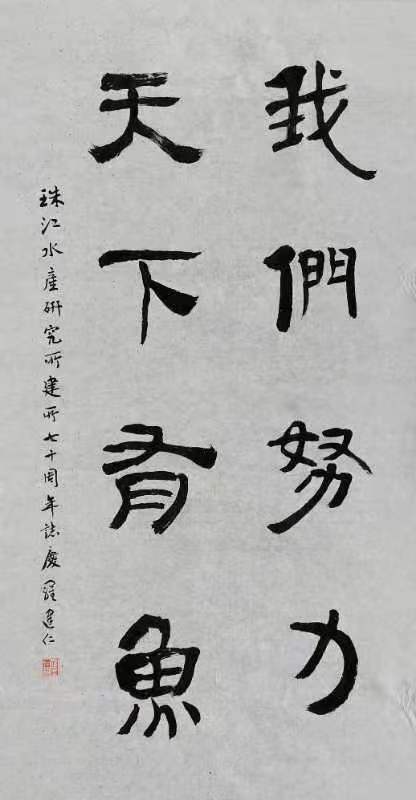 我們努力
天下有魚
珠江水產研究所建所七十周年誌慶 羅建仁